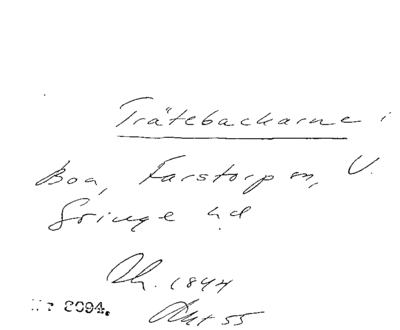 Trätebackarne i
Boa, Farstorp sn, V.
Göinge hd
Dh. 1844
Nr 2094.
Akt 55